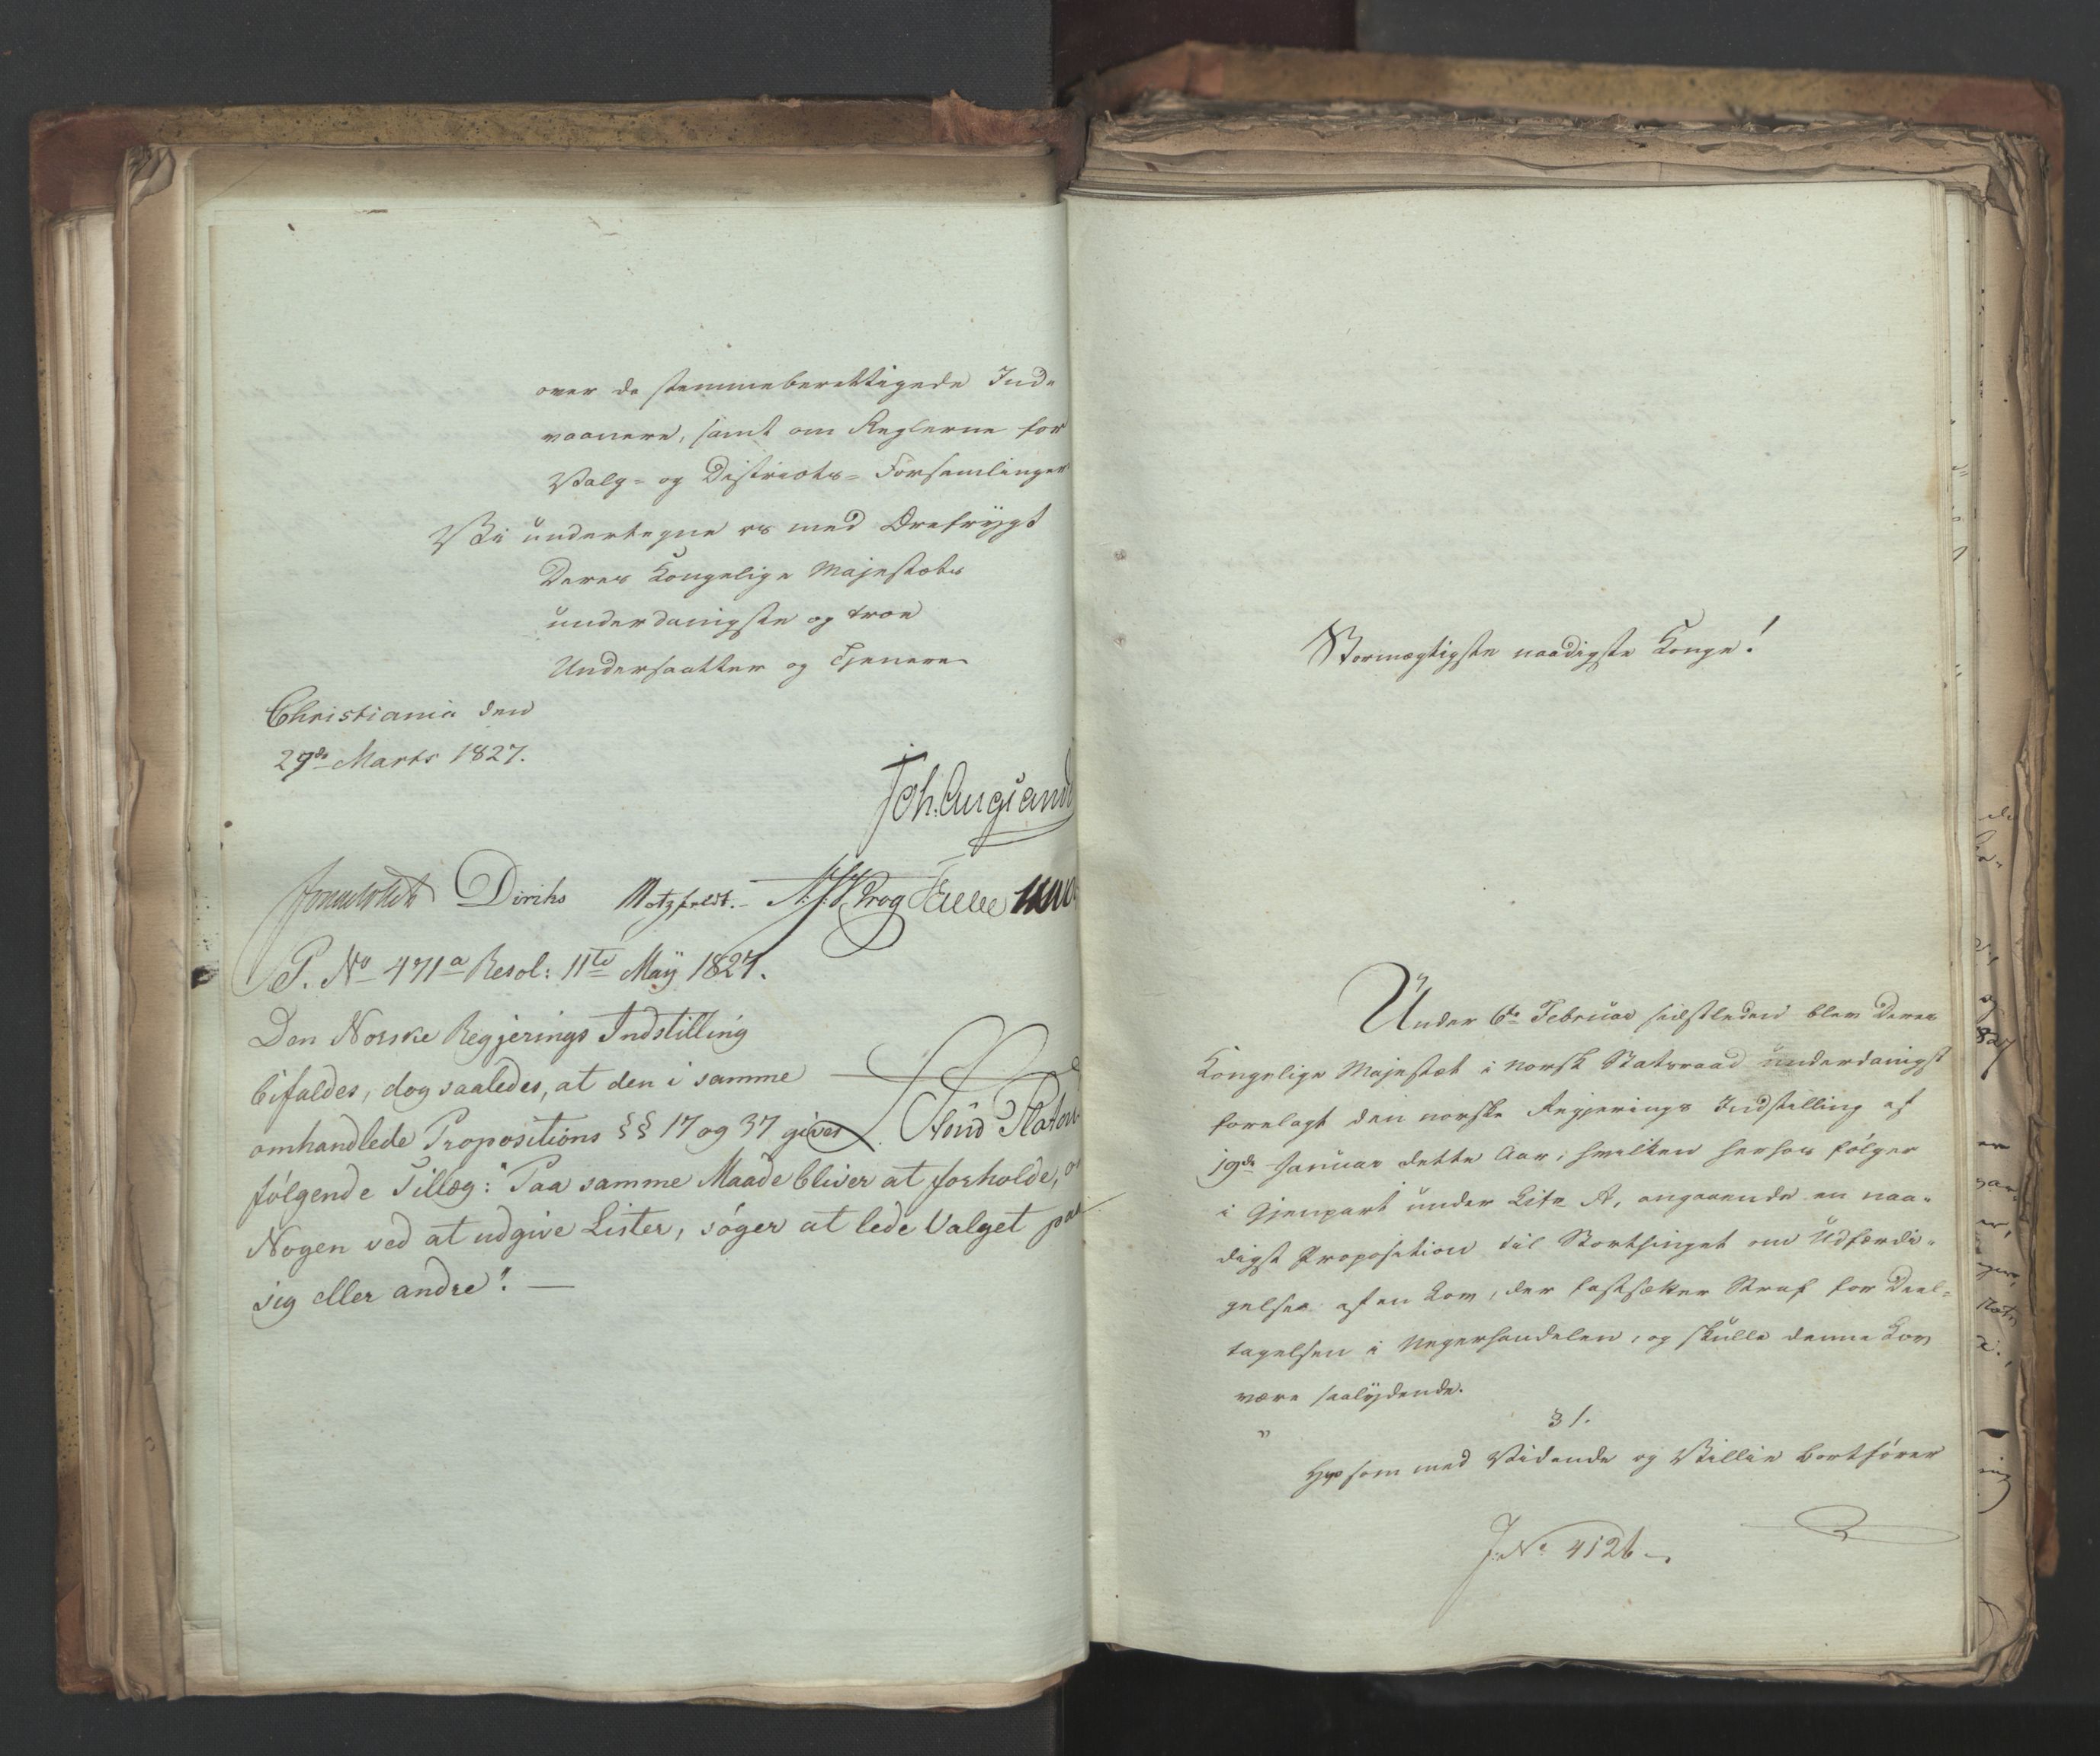 over de stemmeberettigede Ind-
vaanere, samt om Reglerne for
Valg- og Districts-Forsamlinger
Vi undertegne os med Ærefrygt
Deres Kongelige Majestæts
underdanigste og troe
Undersaatter og Tjenere
Christiania den
29de Marts 1827.
Joh. Aug. Sand
Diriks Motzfeldt. Krog
P. No 471a Resol: 11te Maij 1827.
Den Norske Regjerings Indstilling
bifaldes, dog saaledes, at den i samme
omhandlede Propositions §§ 17 og 37 gives
følgende Tillæg: "Paa samme Maade bliver at forholde, om
Nogen ved at udgive Lister, søger at lede Valget paa
sig eller andre". —
Stormægtigste naadigste Konge!
Under 6te Februar sidstleden blev Deres
Kongelige Majestæt i norsk Statsraad underdanigst
forelagt den norske Regjerings Indstilling af
19de Januar dette Aar, hvilken herhos følger
i Gjenpart under Litr A, angaaende en naa-
digst Proposition til Storthinget om Udfærdi-
gelse af en Lov, der fastsætter Straf for Deel-
tagelsen i Negerhandelen, og skulle denne Lov
være saalydende.
" § 1.
Hvo som med Vidende og Villie bortfører
J. No 4126